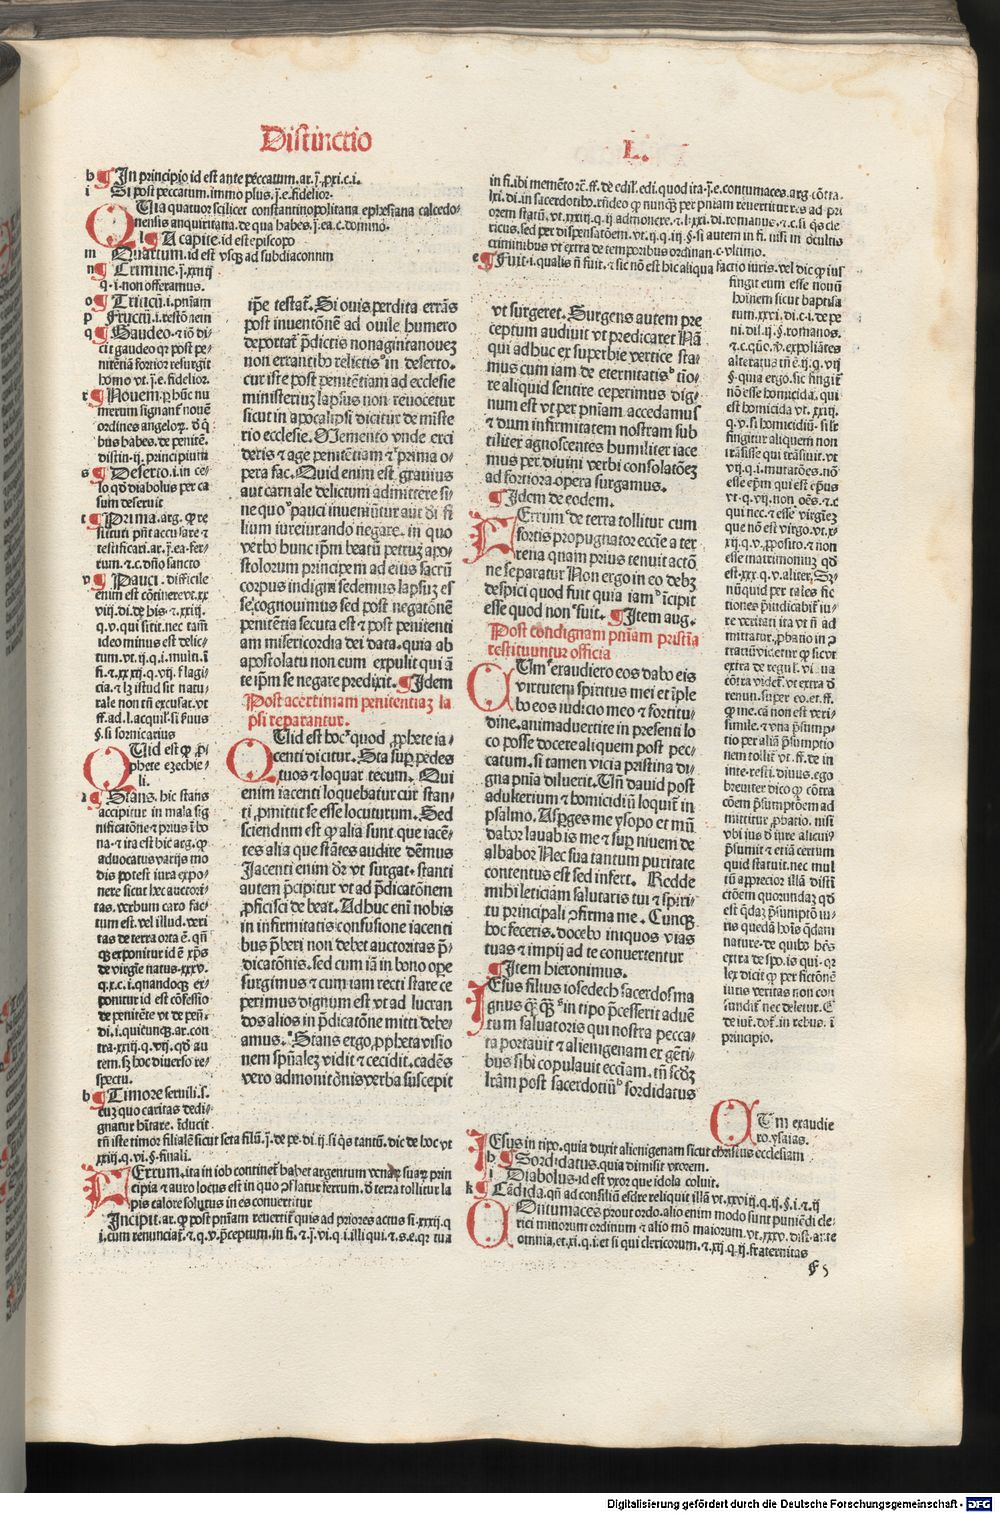 Distinctio
L.
h ¶ In principio id est ante peccatum. ar. j. ꝓxi. c. i.
i Si post peccatum. immo plus. j. e. fidelior.
QUia quatuor scilicet constantinopolitana ephesiana calcedo-
nensis anquiritana. de qua habes. j. ea. c. domino.
¶ A capite. id est episcopo
m Quartum. id est vsqꝫ ad subdiaconum
n ¶ Crimine. j. xxiiij
q. i. non offeramus.
p Fructū. i. restōnem
q ¶ Gaudeo. et iō di-
cit gaudeo qꝛ post pe-
nitētiā fortior resurgit
homo vt. j. e. fidelior.
r ¶ Nouem. ꝓ hūc nu
merum signant nouē
ordines angeloꝝ. d̄ q̄
bus habes. de penitē.
distin. ij. principium
s ¶ Deserto. i. in ce-
lo qd̄ diabolus per ca
sum deseruit
t ¶ Prima. arg. ꝙ re
stituti pn̄t accusare et
testificari. ar. j. ea. fer-
rum. et c. dn̄o sancto
v ¶ Pauci. difficile
enim est cōtinere vt. xx
viij. di. de his. et. xxiij.
q. v. qui sitit. nec tam̄
ideo minus est delic-
tum. vt. ij. q. i. multi. ī
fi. et. xxxij. q. vij. flagi-
cia. et lꝫ istud sit natu-
rale non tn̄ excusat. vt
ff. ad. l. aquil. si seruus
§. si fornicarius
QUid est ꝙ ꝓ-
phete ezechie-
li.
¶ Stans. hic stans
accipitur in mala sig
nificatōne et prius ī bo
na. et ita est hic arg. ꝙ
aduocatus varijs mo
dis potest iura expo-
nere sicut hec auctori-
tas. verbum caro fac-
tum est. vel illud. veri
tas de terra orta ē. qn̄
qꝫ exponitur id ē xp̄s
de virgīe natus. xxxv.
q. x. c. i. qnandoqꝫ ex-
ponitur id est cōfessio
de penitēte vt de pen̄.
di. i. quicunqꝫ. ar. con
tra. xxiij. q. vij. qd̄ au
tem. sꝫ hoc diuerso re-
spectu.
b ¶ Timore seruili. s.
cuꝫ quo caritas dedi-
gnatur hītare. īducit
tn̄ iste timor filialē sicut seta filū. j. de pe. di. ij. si q̄s tantū. dic de hoc vt
xxiij. q. vi. §. finali.
FErrum. ita in iob continet̄ habet argentum venaꝝ suaꝝ prin
cipia et auro locus est in quo ꝯflatur ferrum. d̄ terra tollitur la
pis calore solutus in es conuertitur
Incipit. ar. ꝙ post pn̄iam reuertit̄ quis ad priores actus si. xxxij. q
i. cum renunciat̄. et. q. v. p̄ceptum. in fi. et. j. vi. q. i. illi qui. et. s. e. qꝛ tua
ip̄e testat̄. Si ouis perdita errās
post inuentōnē ad ouile humero
deportat̄ p̄dictis nonagintanoueꝫ
non errantibus relictis in deserto.
cur iste post penitētiam ad ecclesie
ministeriuꝫ lapsus non reuocetur
sicut in apocalipsi dicitur de miste
rio ecclesie. Memento vnde exci
deris et age penitētiam et prima o-
pera fac. Quid enim est grauius
aut carnale delictum admittere si-
ne quo pauci inueniūtur aut di fi
lium iureiurando negare. in quo
verbo hunc ip̄m beatū petruꝫ apo-
stolorum principem ad eius sacrū
corpus indigni sedemus lapsuꝫ es
se. cognouimus sed post negatōnē
penitētia secuta est et post penitenti
am misericordia dei data. quia ab
apostolatu non eum expulit qui ā
te ip̄m se negare predixit. ¶ Idem
Post acerrimam penitentiaꝫ la
psi reparantur.
QUid est hoc quod ꝓphete ia-
centi dicitur. Sta supꝛ pedes
tuos et loquar tecum. Qui
enim iacenti loquebatur cur stan-
ti ꝓmittit se esse locuturum. Sed
sciendum est ꝙ alia sunt que iacē-
tes alia que stātes audire dēmus
Jacenti enim dr̄ vt surgat. stanti
autem p̄cipitur vt ad p̄dicatōnem
ꝓficisci debeat. Adhuc enī nobis
in infirmitatis confusione iacenti
bus p̄beri non debet auctoritas p̄-
dicatōnis. sed cum iā in bono oꝑe
surgimus et cum iam recti stare ce
perimus dignum est vt ad lucran
dos alios in p̄dicatōne mitti debe-
amus. Stans ergo ꝓpheta visio
nem spūalez vidit et cecidit. cadēs
vero admonitōnis verba suscepit
in fi. ibi memēto rē. ff. de edil. edi. quod ita. j. e. contumaces. arg. cōtra.
lxi. di. in sacerdotibꝰ. rn̄deo ꝙ nunqꝫ per pn̄iam reuertitur ꝗs ad pri
orem statū. vt. xxxij. q. ij admonere. et. lxxi. di. romanus. et. c. si q̄s cle
ricus. sed per dispensatōem. vt. ij. q. iij. §. si autem in fi. nisi in occultis
criminibus vt extra de temporibus ordinan. c. vltimo.
e ¶ Fuit. i. qualis n̄ fuit. et sic nō est hic aliqua factio iuris. vel dic ꝙ ius
fingit eum esse nouū
hoīnem sicut baptisa
tum. xxvi. di. c. i. de pe
ni. dil. ij. §. romanos.
alteratur tn̄ ē. ij. q. vij
§. qua ergo. sic fingit̄
nō esse homicida. qui
est homicida vt. xxiij.
q. v. si homicidiū. silr̄
fingitur aliquem non
trāsisse qui trāsiuit. vt
vij. q. i. mutatōes. nō
esse ep̄m qui est ep̄us
vt. q. vij. non oēs. et. c
qui nec. et esse virgīeꝫ
que nō est virgo. vt. x
xij. q. v. ꝓposito. et non
esse matrimoniuꝫ qd̄
est. xxx. q. v. aliter. Sꝫ
nunquid per tales fic
tiones p̄iudicabit̄ iu-
re veritati ita vt n̄ ad
mittatur. ꝓbatio in ꝯ
trariū videtur ꝙ sic vt
extra de regul. vi. ua
cōtra videt̄. vt extra d̄
renun. super eo. et. ff.
breuiter dico ꝙ cōtra
cōem p̄sumptōem ad
mittitur ꝓbatio. nisi
vbi ius d̄ iure alicui
p̄sumit et etiā certum
quid statuit. nec mul
tū apprecior illā distī
ctōem quorundaꝫ qd̄
est q̄daꝫ p̄sumptō iu-
ris quedā hoīs q̄dam
nature. de quibꝰ hēs
extra de spō. is qui. qꝛ
lex dicit ꝙ per fictōnē
iuris veritas non con
fundit̄ nec deletur. et
de iur. dot̄. in rebus. ī
principio.
vt surgeret. Surgens autem pre
ceptum audiuit vt predicaret Nā
qui adhuc ex superbie vertice sta-
mus cum iam de eternitatis tiō-
re aliquid sentire ceperimus dig-
num est vt per pn̄iam accedamus
et dum infirmitatem nostram sub
tiliter agnoscentes humiliter iace
mus per diuini verbi consolatōeꝫ
ad fortiora opera surgamus.
¶ Idem de eodem.
FErrum de terra tollitur cum
fortis propugnator eccīe a ter
rena quam prius tenuit actō
ne separatur Non ergo in eo debꝫ
despici quod fuit quia iam īcipit
esse quod non fuit. ¶ Item aug.
Post condignam pn̄iam pristīa
restituuntur officia
CUm exaudiero eos dabo eis
virtutem spiritus mei et īple
bo eos iudicio meo et fortitu-
dine. animaduertite in presenti lo
co posse docere aliquem post pec-
catum. si tamen vicia pristina di-
gna pn̄ia diluerit. Vn̄ dauid post
adulterium et homicidiū loquit̄ in
psalmo. Asꝑges me ysopo et mū.
dabor lauabis me et supꝛ niuem de
albabor Nec sua tantum puritate
contentus est sed infert. Redde
mihi leticiam salutaris tui et spiri-
tu principali ꝯfirma me. Cunqꝫ
hoc feceris. docebo iniquos vias
tuas et impij ad te conuertentur
¶ Item hieronimus.
IEsus filius iosedech sacerdos ma
gnus qꝛ qꝫ in tipo p̄cesserit aduē
tum saluatoris qui nostra pecca-
ta portauit et alienigenam ex gēti-
bus sibi copulauit ecciam. tn̄ scdꝫ
lr̄am post sacerdotiū sordidatus
CUm exaudie
ro. ysaias.
IEsus in tipo. quia duxit alienigenam sicut christus ecclesiam
h ¶ Sordidatus. quia dimisit vxorem.
i Diabolus. id est vxor que idola coluit.
k ¶ Cādida. qn̄ ad consiliū esdre reliquit illā vt. xxviij. q. ij. §. i. et. ij
COntumaces prout ordo. alio enim modo sunt puniēdi cle-
rici minorum ordinum et alio mō maiorum. vt. xxxv. dist. ante
omnia. et. xi. q. i. et si qui clericorum. et. xij. q. ij. fraternitas
f 5
Digitalisierung gefördert durch die Deutsche Forschungsgemeinschaft - DFG